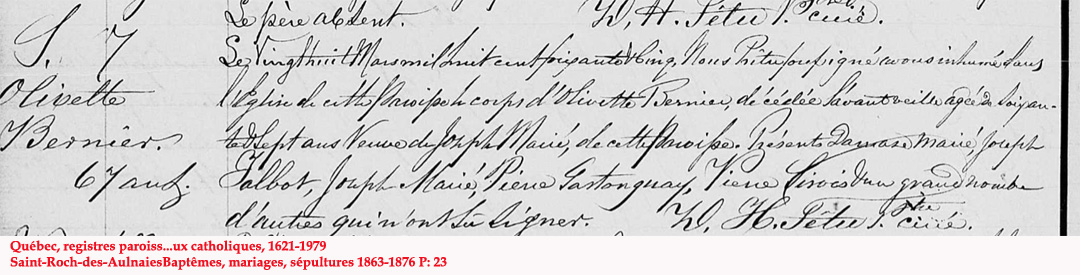 Le père absent. D. H. Têtu Ptre curé.
S. 7
Olivette
Bernier.
67 ans.
Le Vingt huit Mars mil huit cent soixante & cinq, Nous Prêtre soussigné avons inhumé dans
l'Eglise de cette Paroisse le corps d'Olivette Bernier, décédée l'avant veille agée de soixan-
te & sept ans Veuve de Joseph Marié, de cette Paroisse. Présents Damase Marié, Joseph
Talbot, Joseph Marié, Pierre Gastonguay, Pierre Sirois & un grand nombre
d'autres qui n'ont su signer. D. H. Têtu Ptre curé.
Québec, registres paroiss...ux catholiques, 1621-1979
Saint-Roch-des-AulnaiesBaptêmes, mariages, sépultures 1863-1876 P: 23